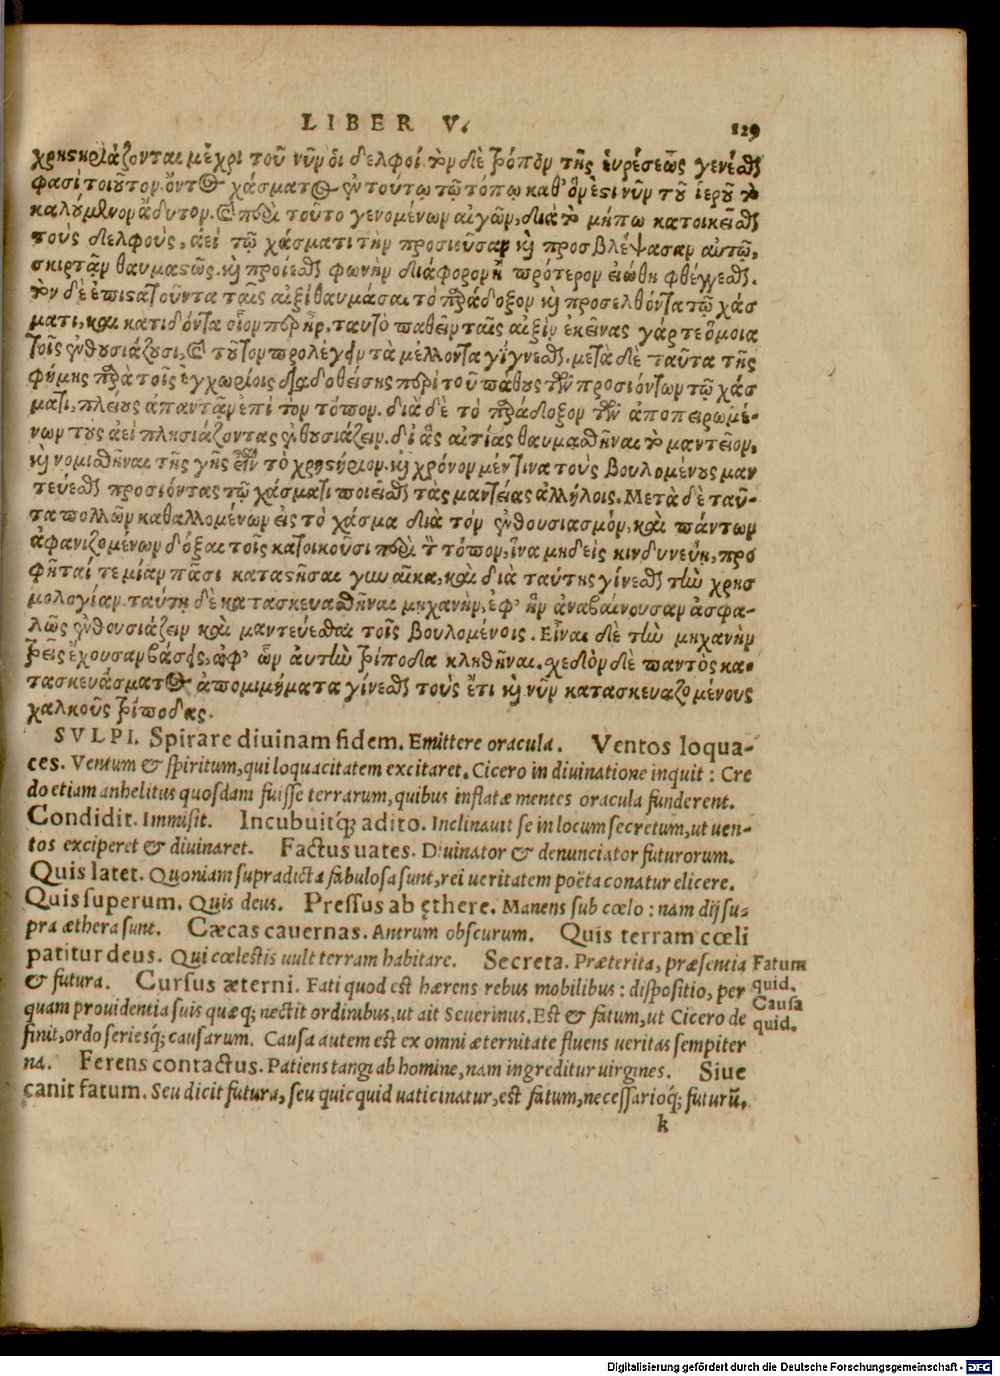 LIBER V.
129
χρηστηριάζονται μέχρι τοῦ νῦν ὁι δελφοί. τὸν δὲ τρόπον τῆς ἑυρέσεως γενέσθαι
φασὶ τοιοῦτον. ὄντος χάσματος ἐν τούτῳ τῷ τόπῳ καθ' ὅν ἐστι νῦν τοῦ ἱεροῦ τὸ
καλούμενον ἄδυτον. καὶ περὶ τοῦτο γενομένων αἰγῶν, διὰ τὸ μήπω κατοικεῖσθαι
τοὺς δελφοὺς, ἀεί τῷ χάσματι τὴν προσιοῦσαν καὶ προσβλέψασαν αὐτῷ,
σκιρτᾶν θαυμαστῶς. καὶ προίεσθαι φωνὴν διάφορον ἢ πρότερον εἰώθη φθέγγεσθαι.
τὸν δὲ ἐπιστατοῦντα ταῖς αἰξὶ θαυμάσαι τὸ παράδοξον καὶ προσελθόντα τῷ χάσ
ματι, καὶ κατιδόντα οἷον περ ἦν, ταυτὸ παθεῖν ταῖς αἰξὶν ἐκεῖνας γάρ τε ὅμοια
τοῖς ἐνθουσιάζουσι, καὶ τοῦτον προλέγειν τὰ μέλλοντα γίγνεσθαι. μετὰ δὲ ταῦτα τῆς
φήμης παρὰ τοῖς ἐγχωρίοις διαδοθείσης περὶ τοῦ πάθους τῶν προσιόντων τῷ χάσ
ματι, πλείους ἀπαντᾶν ἐπὶ τὸν τόπον. διὰ δὲ τὸ παράδοξον τῶν ἀποπειρωμέ-
νων τοὺς ἀεὶ πλησιάζοντας ἐνθουσιάζειν. δι' ἃς αἰτίας θαυμασθῆναι τὸ μαντεῖον,
καὶ νομισθῆναι τῆς γῆς εἶναι τὸ χρηστήριον. καὶ χρόνον μέν τινα τοὺς βουλομένους μαν
τεύεσθαι προσιόντας τῷ χάσματι ποιεῖσθαι τὰς μαντείας ἀλλήλοις. Μετὰ δὲ ταῦ-
τα πολλῶν καθαλλομένων εἰς τὸ χάσμα διὰ τὸν ἐνθουσιασμὸν, καὶ πάντων
ἀφανιζομένων δόξαι τοῖς κατοικοῦσι περὶ τὸν τόπον, ἵνα μηδεὶς κινδυνεύῃ, προ
φῆταί τε μίαν πᾶσι καταστῆσαι γυναῖκα, καὶ διὰ ταύτης γίνεσθαι τὴν χρησ
μολογίαν. ταύτῃ δὲ κατασκευασθῆναι μηχανὴν, ἐφ' ἣν ἀναβαίνουσαν ἀσφα-
λῶς ἐνθουσιάζειν καὶ μαντεύεσθαι τοῖς βουλομένοις. Εἶναι δὲ τὴν μηχανὴν
τρεῖς ἔχουσαν βάσεις, ἀφ' ὧν ἀυτὴν τρίποδα κληθῆναι. σχεδὸν δὲ παντὸς κα-
τασκευάσματος ἀπομιμήματα γίνεσθαι τοὺς ἔτι καὶ νῦν κατασκευαζομένους
χαλκοῦς τρίποδας.
SVLPI. Spirare diuinam fidem. Emittere oracula. Ventos loqua-
ces. Ventum & spiritum, qui loquacitatem excitaret. Cicero in diuinatione inquit: Cre
do etiam anhelitus quosdam fuisse terrarum, quibus inflatæ mentes oracula funderent.
Condidit. Immisit. Incubuitq́; adito. Inclinauit se in locum secretum, ut uen-
tos exciperet & diuinaret. Factus uates. Diuinator & denunciator futurorum.
Quis latet. Quoniam supradicta fabulosa sunt, rei ueritatem poëta conatur elicere.
Quis superum. Quis deus. Pressus ab ęthere. Manens sub cœlo: nam dij su-
pra æthera sunt. Cæcas cauernas. Antrum obscurum. Quis terram cœli
patitur deus. Qui cœlestis uult terram habitare. Secreta. Præterita, præsentia
& futura. Cursus æterni. Fati quod est hærens rebus mobilibus: dispositio, per
quam prouidentia suis quæq; nectit ordinibus, ut ait Seuerinus. Est & fatum, ut Cicero de
finit, ordo seriesq́; causarum. Causa autem est ex omni æternitate fluens ueritas sempiter
na. Ferens contactus. Patiens tangi ab homine, nam ingreditur uirgines. Siue
canit fatum. Seu dicit futura, seu quicquid uaticinatur, est fatum, necessarioq́; futurũ.
Fatum
quid.
Causa
quid.
k
Digitalisierung gefördert durch die Deutsche Forschungsgemeinschaft - DFG